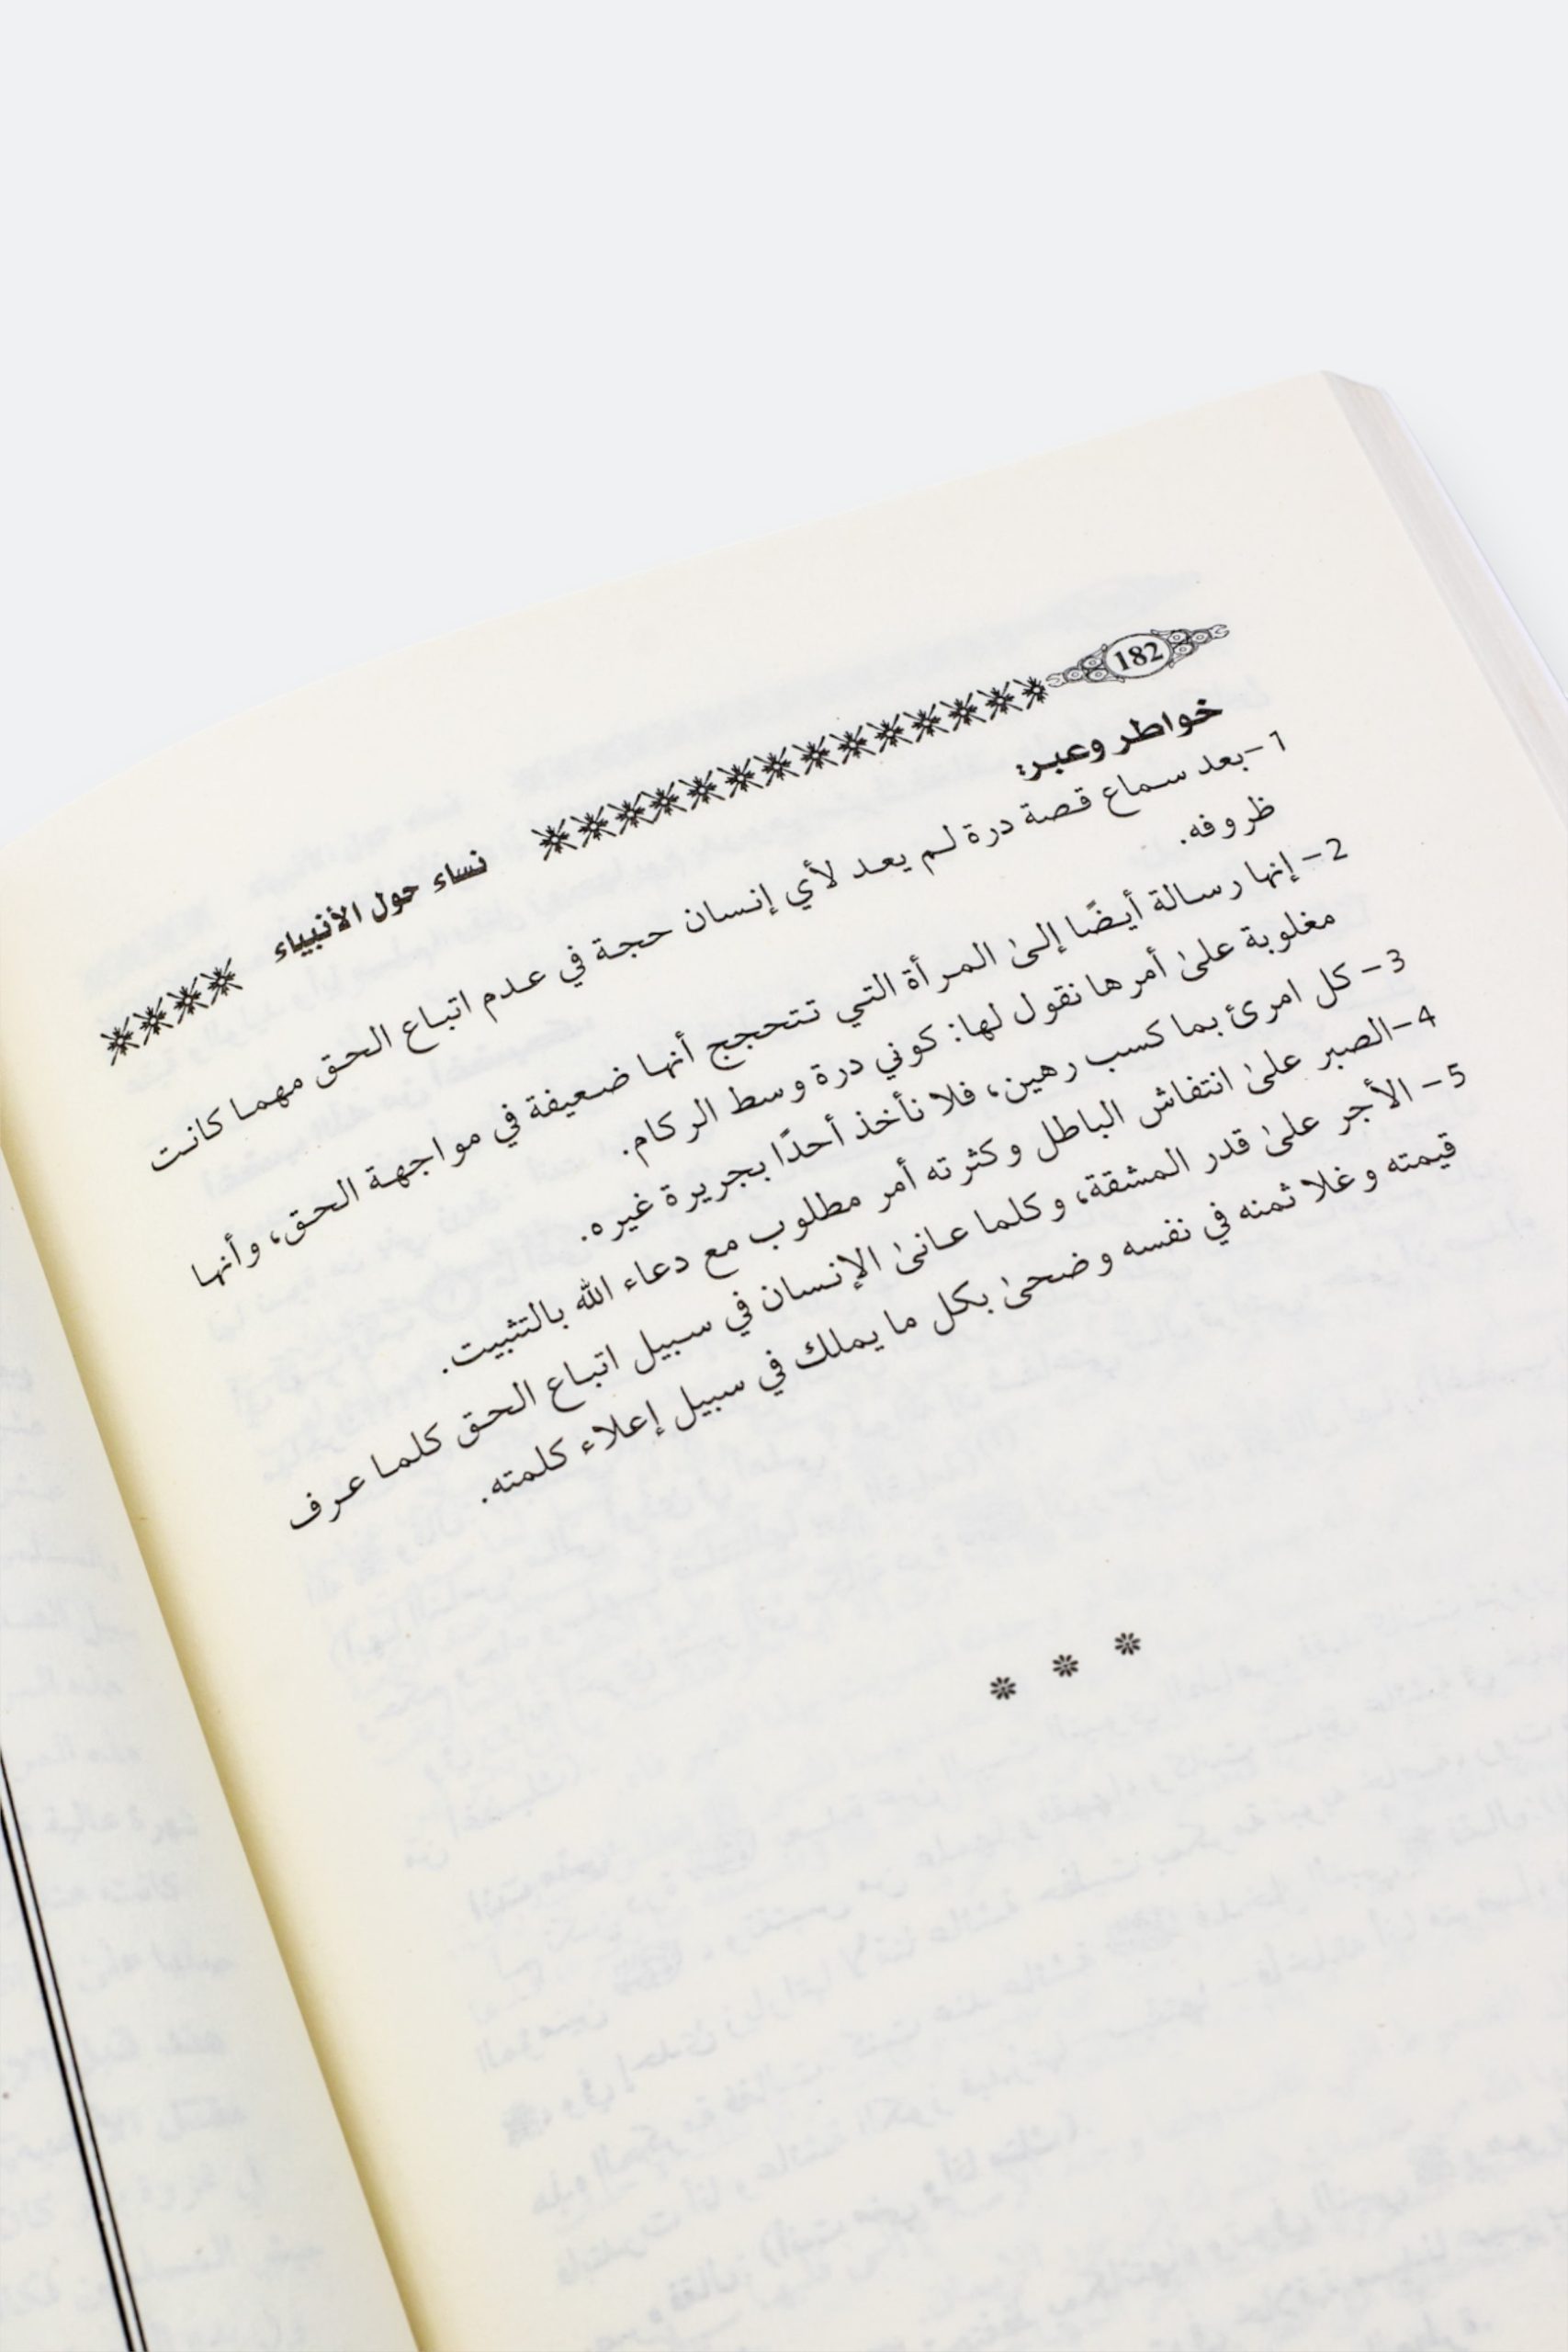 182
نساء حول الأنبياء
خواطر وعبر:
1- بعد سماع قصة درة لم يعد لأي إنسان حجة في عدم اتباع الحق مهما كانت
ظروفه.
2- إنها رسالة أيضًا إلىٰ المرأة التي تتحجج أنها ضعيفة في مواجهة الحق، وأنها
مغلوبة علىٰ أمرها نقول لها: كوني درة وسط الركام.
3- كل امرئ بما كسب رهين، فلا نأخذ أحدًا بجريرة غيره.
4- الصبر علىٰ انتفاش الباطل وكثرته أمر مطلوب مع دعاء الله بالتثبيت.
5- الأجر علىٰ قدر المشقة، وكلما عانىٰ الإنسان في سبيل اتباع الحق كلما عرف
قيمته وغلا ثمنه في نفسه وضحىٰ بكل ما يملك في سبيل إعلاء كلمته.